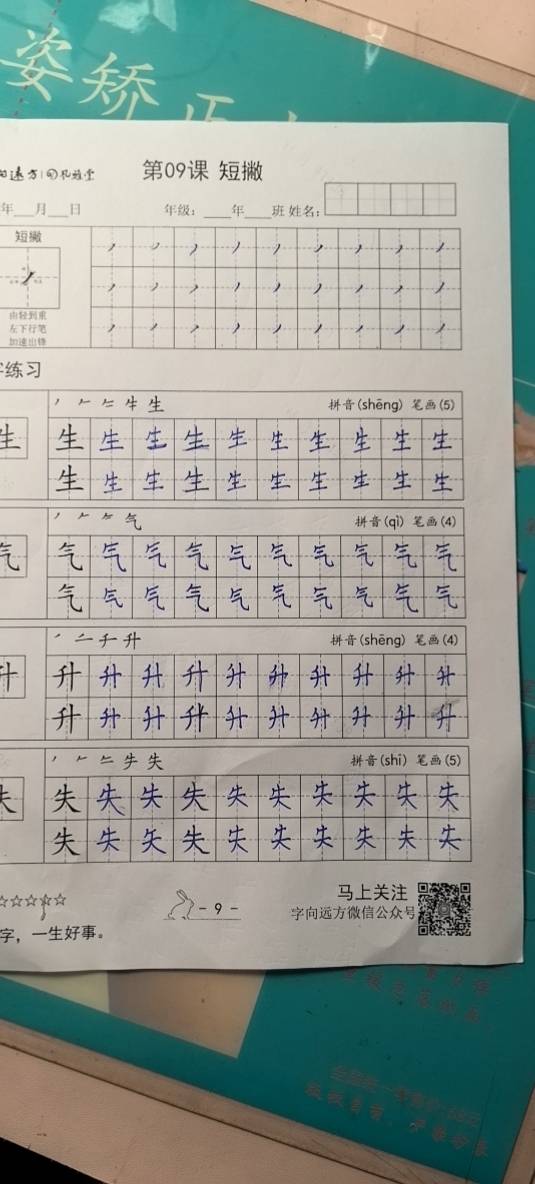 姿矫正
向远方
第09课 短撇
年__月__日 年级：____年____班 姓名：
短撇
由轻到重
左下行笔
加速出锋
字练习
生 拼音(shēng) 笔画(5)
生 生 生 生 生 生 生 生 生 生 生
生 生 生 生 生 生 生 生 生 生
气 拼音(qì) 笔画(4)
气 气 气 气 气 气 气 气 气 气 气
气 气 气 气 气 气 气 气 气 气
二 千 升 拼音(shēng) 笔画(4)
升 升 升 升 升 升 升 升 升 升 升
升 升 升 升 升 升 升 升 升 升
失 拼音(shī) 笔画(5)
失 失 失 失 失 失 失 失 失 失 失
失 失 矢 失 失 失 失 失 失 失
☆☆☆☆☆ - 9 - 马上关注
字向远方微信公众号
字，一生好事。